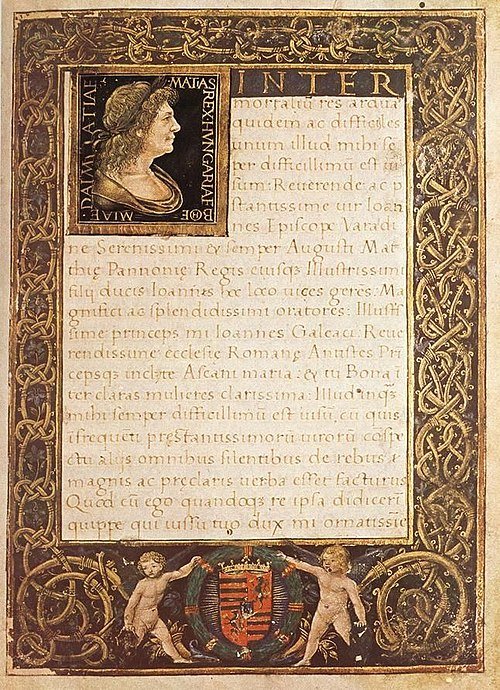 MATIAS REX HVNGARIAE BOE
MIAE DALMATIAE
INTER
mortaliū res arduas
quidem ac difficiles
unum illud mihi se
per difficillimū est ui
sum: Reuerende ac p
stantissime uir Ioān
nes Episcope Varadi
ne Serenissimi & semper Augusti Mat
thię Pannonię Regis eiusqȝ Illustrissimi
filij ducis Ioannis hoc loco uices gerēs: Ma
gnifici ac splendidissimi oratores: Illustris
sime princeps mi Ioannes Galeaci: Reue
rendissime ecclesię Romanę Antistes Pri
cepsqȝ inclyte Ascani maria: & tu Bona ī
ter claras mulieres clarissima: Illud inqȝ
mihi semper difficillimū est uisū, cū quis
ī frequēti pręstantissimorū uirorū cōspe
ctu alijs omnibus silentibus de rebus
magnis ac preclaris uerba esset facturus
Quod cū ego quandoqȝ re ipsa didicerī
quippe qui iussu tuo dux mi ornatissīe